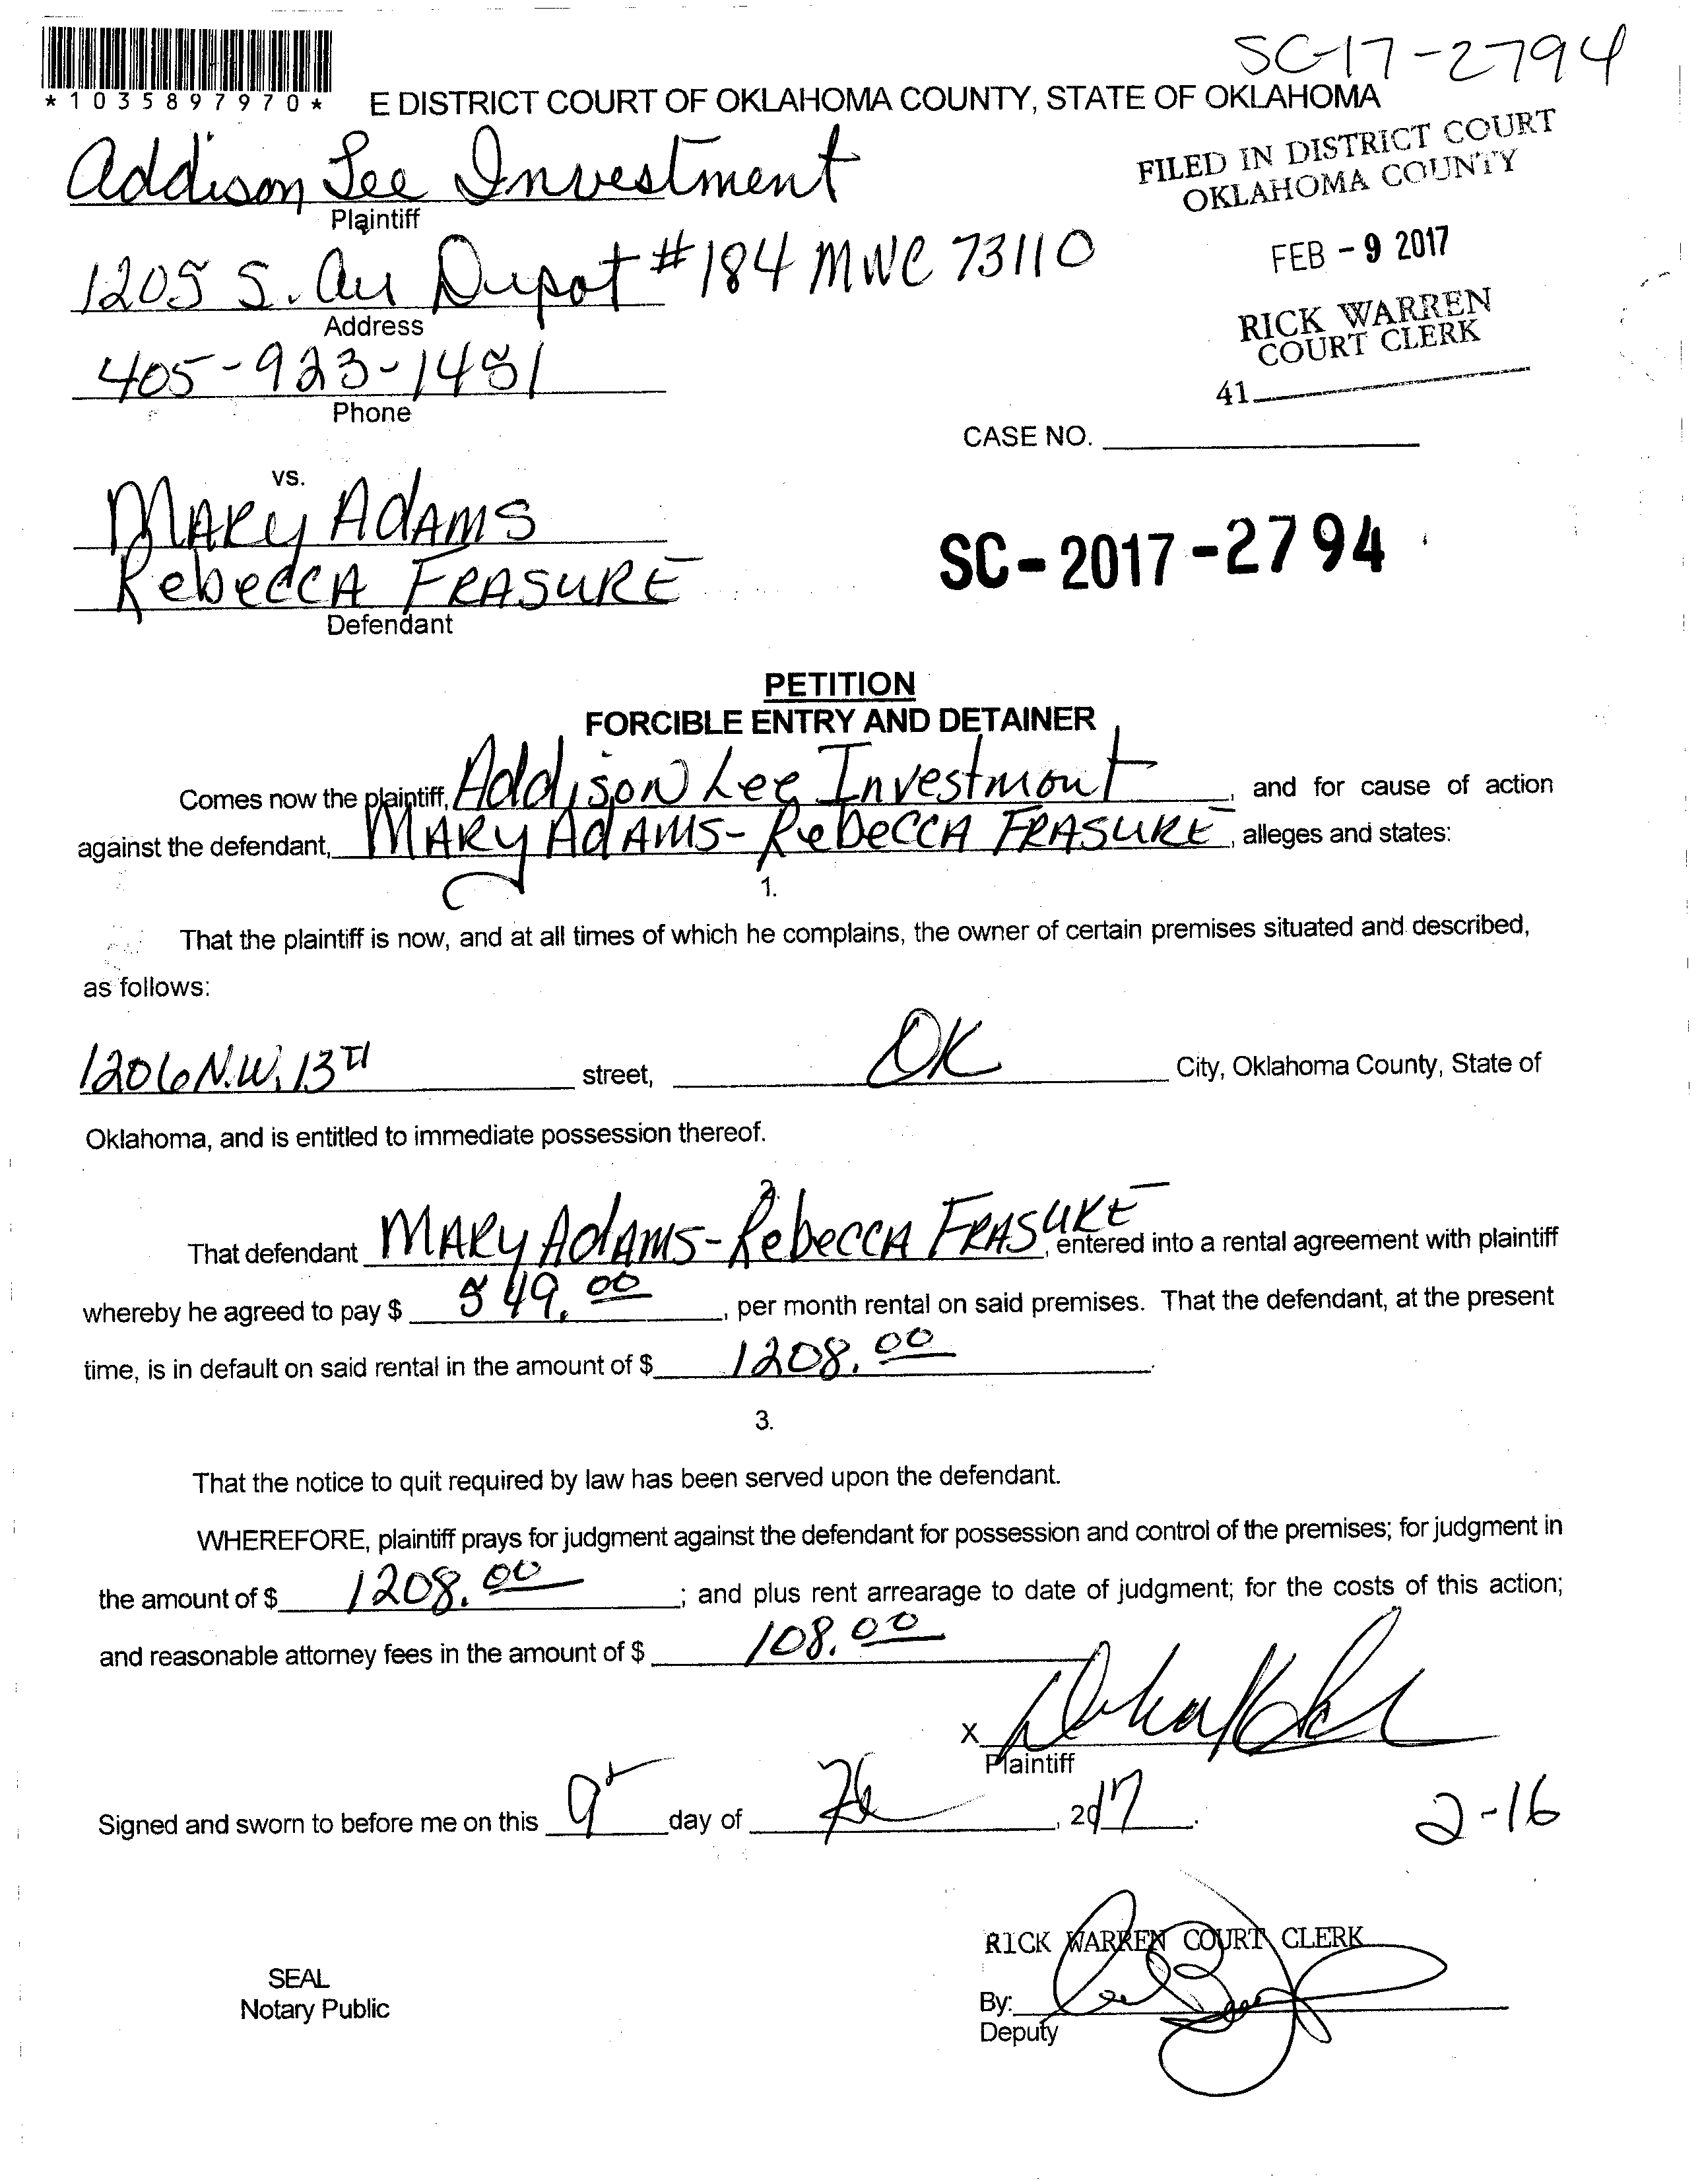 SC-17-2794
*1035897970*
E DISTRICT COURT OF OKLAHOMA COUNTY, STATE OF OKLAHOMA
Addison Lee Investment
Plaintiff
FILED IN DISTRICT COURT
OKLAHOMA COUNTY
FEB - 9 2017
RICK WARREN
COURT CLERK
41
1205 S. Air Depot #184 MWC 73110
Address
405-923-1481
Phone
CASE NO.
vs.
Mary Adams
Rebecca Frasure
Defendant
SC-2017-2794
PETITION
FORCIBLE ENTRY AND DETAINER
Comes now the plaintiff, Addison Lee Investment, and for cause of action
against the defendant, Mary Adams-Rebecca Frasure, alleges and states:
1.
That the plaintiff is now, and at all times of which he complains, the owner of certain premises situated and described,
as follows:
1206 N.W. 13TH street, OK City, Oklahoma County, State of
Oklahoma, and is entitled to immediate possession thereof.
2.
That defendant Mary Adams-Rebecca Frasure, entered into a rental agreement with plaintiff
whereby he agreed to pay $ 549.00, per month rental on said premises. That the defendant, at the present
time, is in default on said rental in the amount of $ 1208.00.
3.
That the notice to quit required by law has been served upon the defendant.
WHEREFORE, plaintiff prays for judgment against the defendant for possession and control of the premises; for judgment in
the amount of $ 1208.00; and plus rent arrearage to date of judgment; for the costs of this action;
and reasonable attorney fees in the amount of $ 108.00
X
Plaintiff
Signed and sworn to before me on this 9 day of Feb, 2017.
2-16
RICK WARREN COURT CLERK
SEAL
Notary Public
By:
Deputy